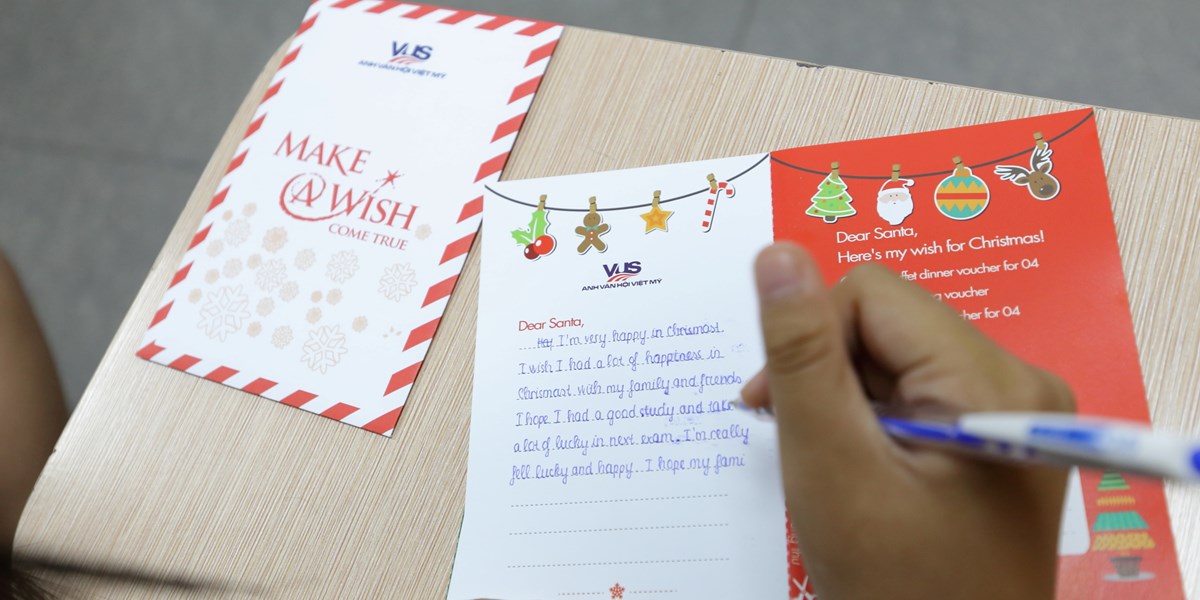 VUS
ANH VĂN HỘI VIỆT MỸ
MAKE
@ WISH
COME TRUE
VUS
ANH VĂN HỘI VIỆT MỸ
Dear Santa,
I'm very happy in Chrismast
I wish I had a lot of happiness in
Chrismast with my family and friends
I hope I had a good study and take
a lot of lucky in next exam. I'm really
fell lucky and happy. I hope my fami
Dear Santa,
Here's my wish for Christmas!
ffet dinner voucher for 04
voucher
cher for 04